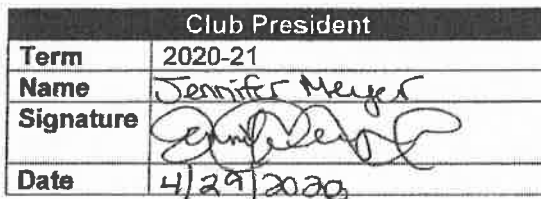 Club President
Term 2020-21
Name Jennifer Meyer
Signature
Date 4/29/2020